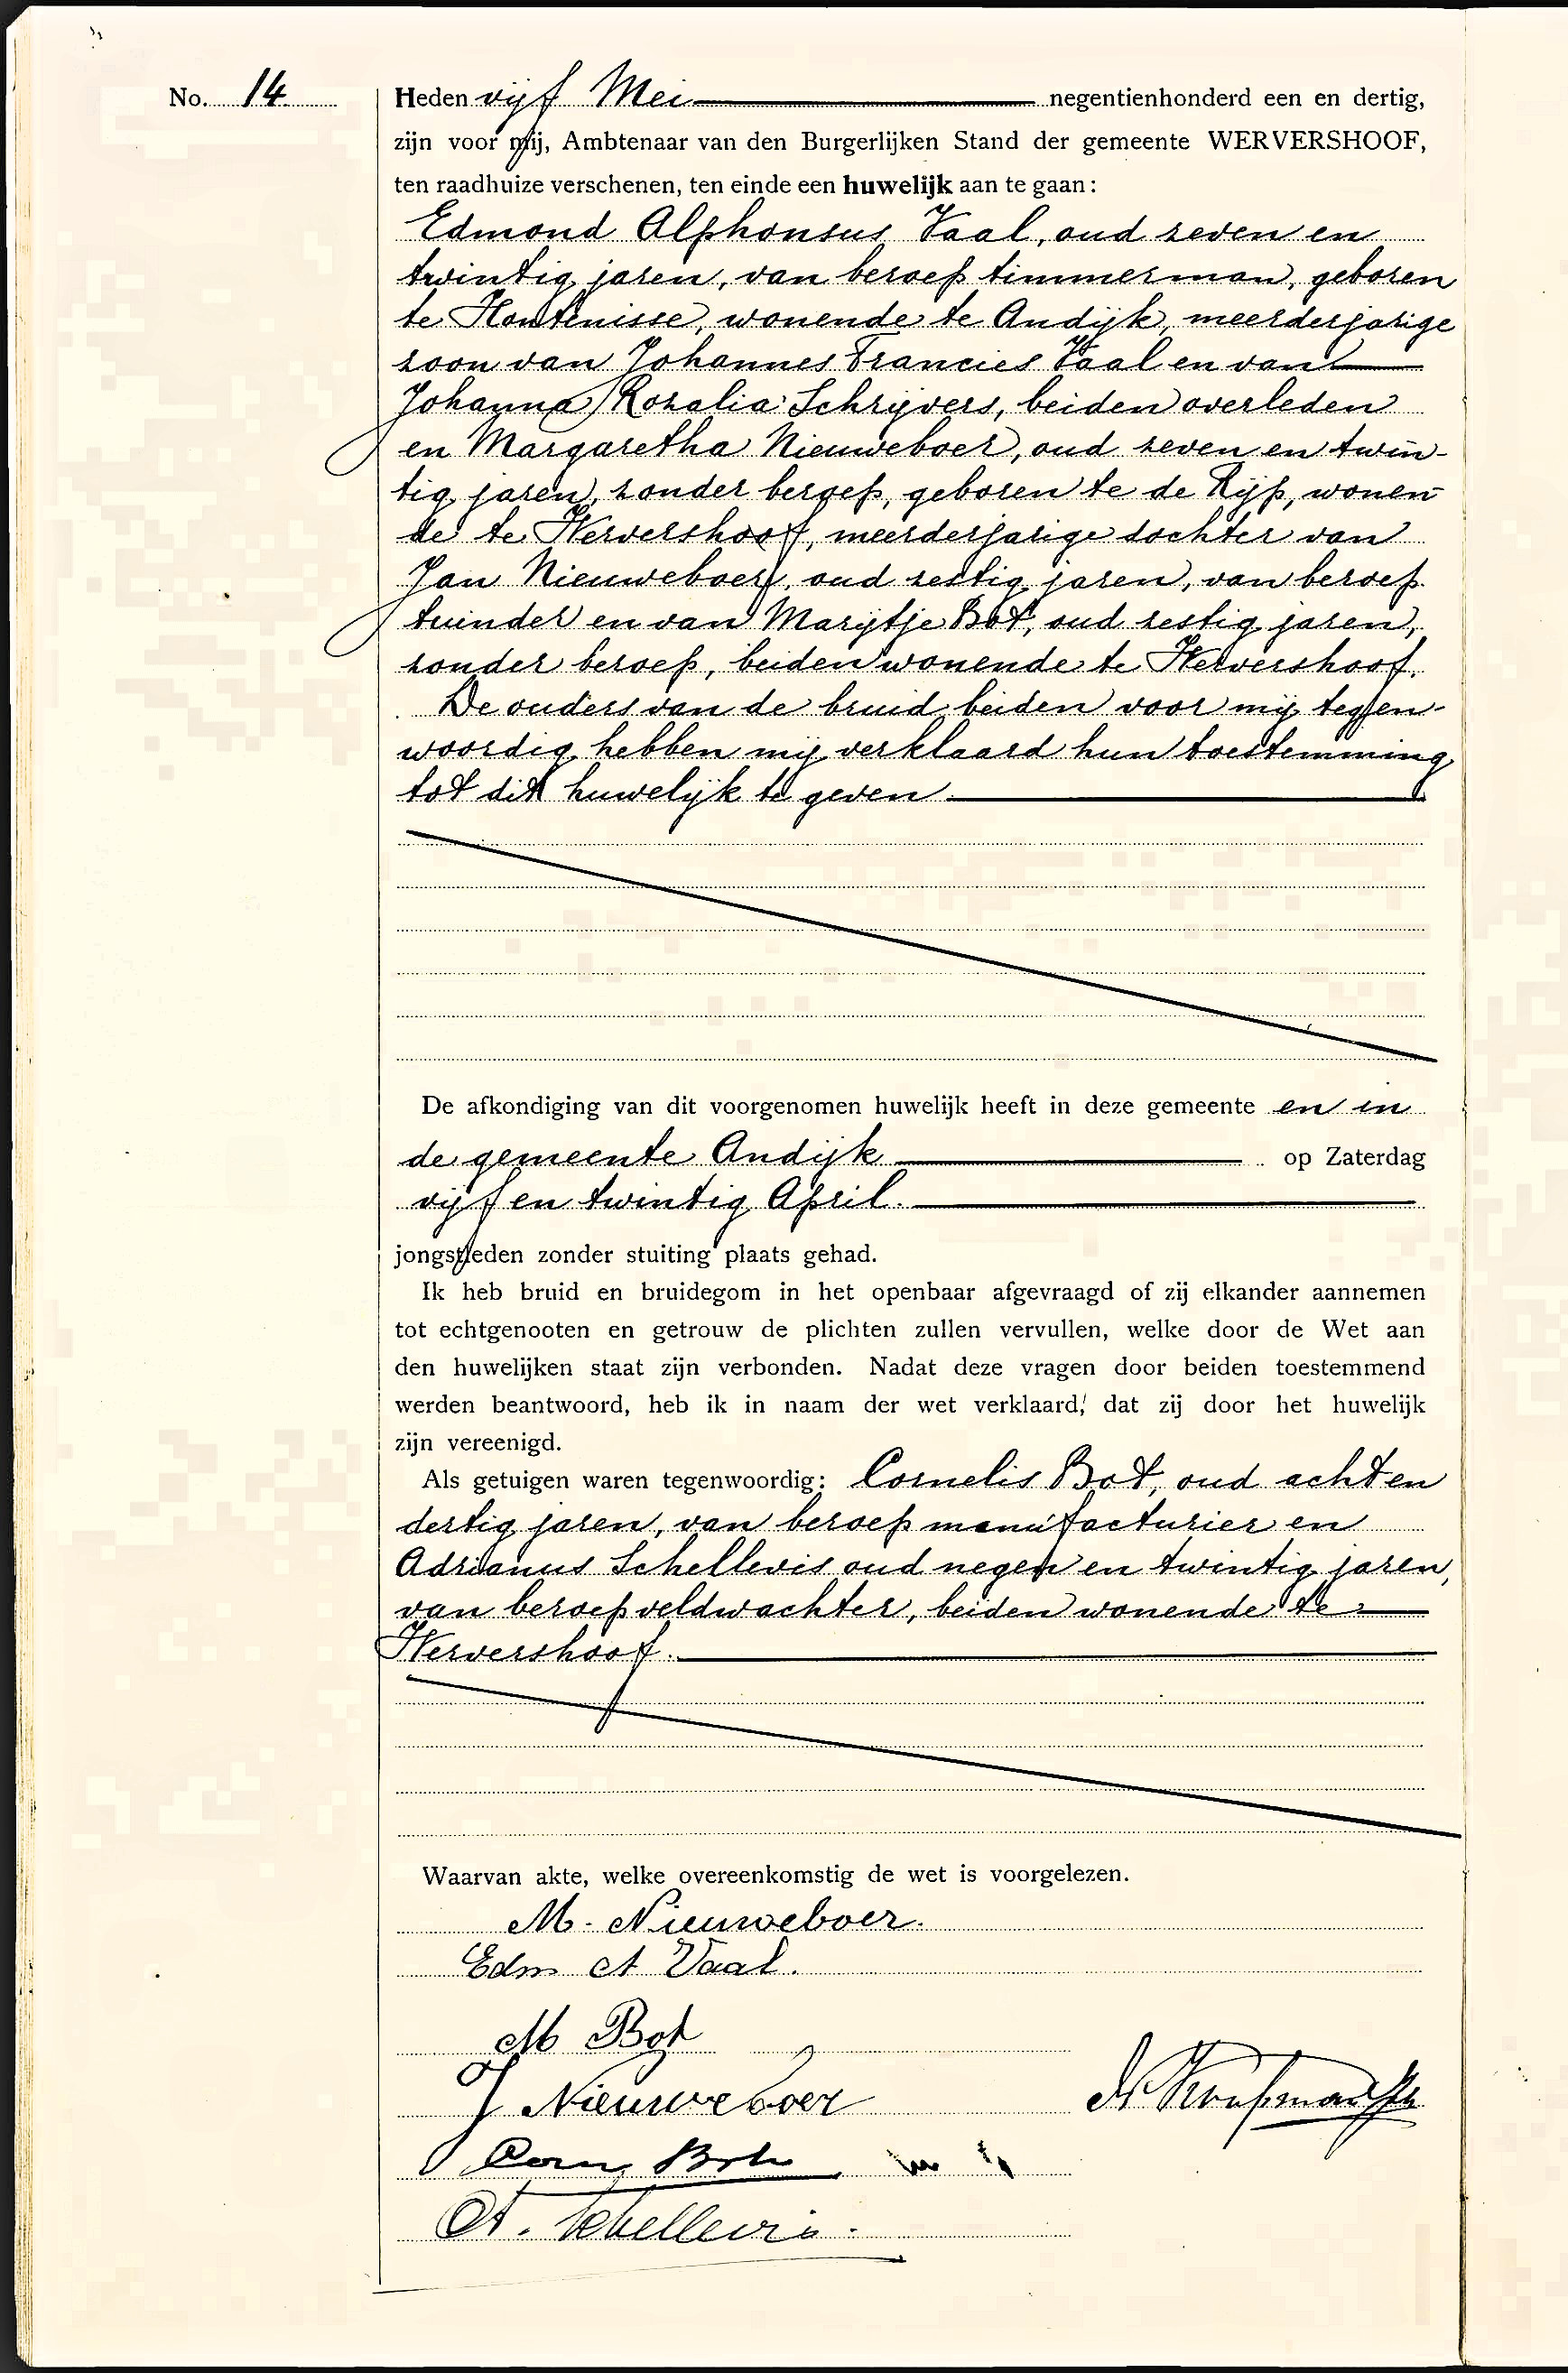 No. 14
Heden vijf Mei negentienhonderd een en dertig,
zijn voor mij, Ambtenaar van den Burgerlijken Stand der gemeente WERVERSHOOF,
ten raadhuize verschenen, ten einde een huwelijk aan te gaan:
Edmond Alphonsus Vaal, oud zeven en
twintig jaren, van beroep timmerman, geboren
te Hontenisse, wonende te Andijk, meerderjarige
zoon van Johannes Francies Vaal en van
Johanna Rozalia Schrijvers, beiden overleden
en Margaretha Nieuweboer, oud zeven en twin-
tig jaren, zonder beroep, geboren te de Rijp, wonen-
de te Wervershoof, meerderjarige dochter van
Jan Nieuweboer, oud zestig jaren, van beroep
tuinder en van Marijtje Bot, oud zestig jaren,
zonder beroep, beiden wonende te Wervershoof.
De ouders van de bruid beiden voor mij tegen-
woordig hebben mij verklaard hun toestemming
tot dit huwelijk te geven.
De afkondiging van dit voorgenomen huwelijk heeft in deze gemeente en in
de gemeente Andijk op Zaterdag
vijf en twintig April.
jongstleden zonder stuiting plaats gehad.
Ik heb bruid en bruidegom in het openbaar afgevraagd of zij elkander aannemen
tot echtgenooten en getrouw de plichten zullen vervullen, welke door de Wet aan
den huwelijken staat zijn verbonden. Nadat deze vragen door beiden toestemmend
werden beantwoord, heb ik in naam der wet verklaard, dat zij door het huwelijk
zijn vereenigd.
Als getuigen waren tegenwoordig: Cornelis Bot, oud acht en
dertig jaren, van beroep manufacturier en
Adrianus Schellevis oud negen en twintig jaren,
van beroep veldwachter, beiden wonende te
Wervershoof.
Waarvan akte, welke overeenkomstig de wet is voorgelezen.
M. Nieuweboer.
Edm A Vaal.
M Bot
J Nieuweboer
Corn Bot
A. Schellevis.